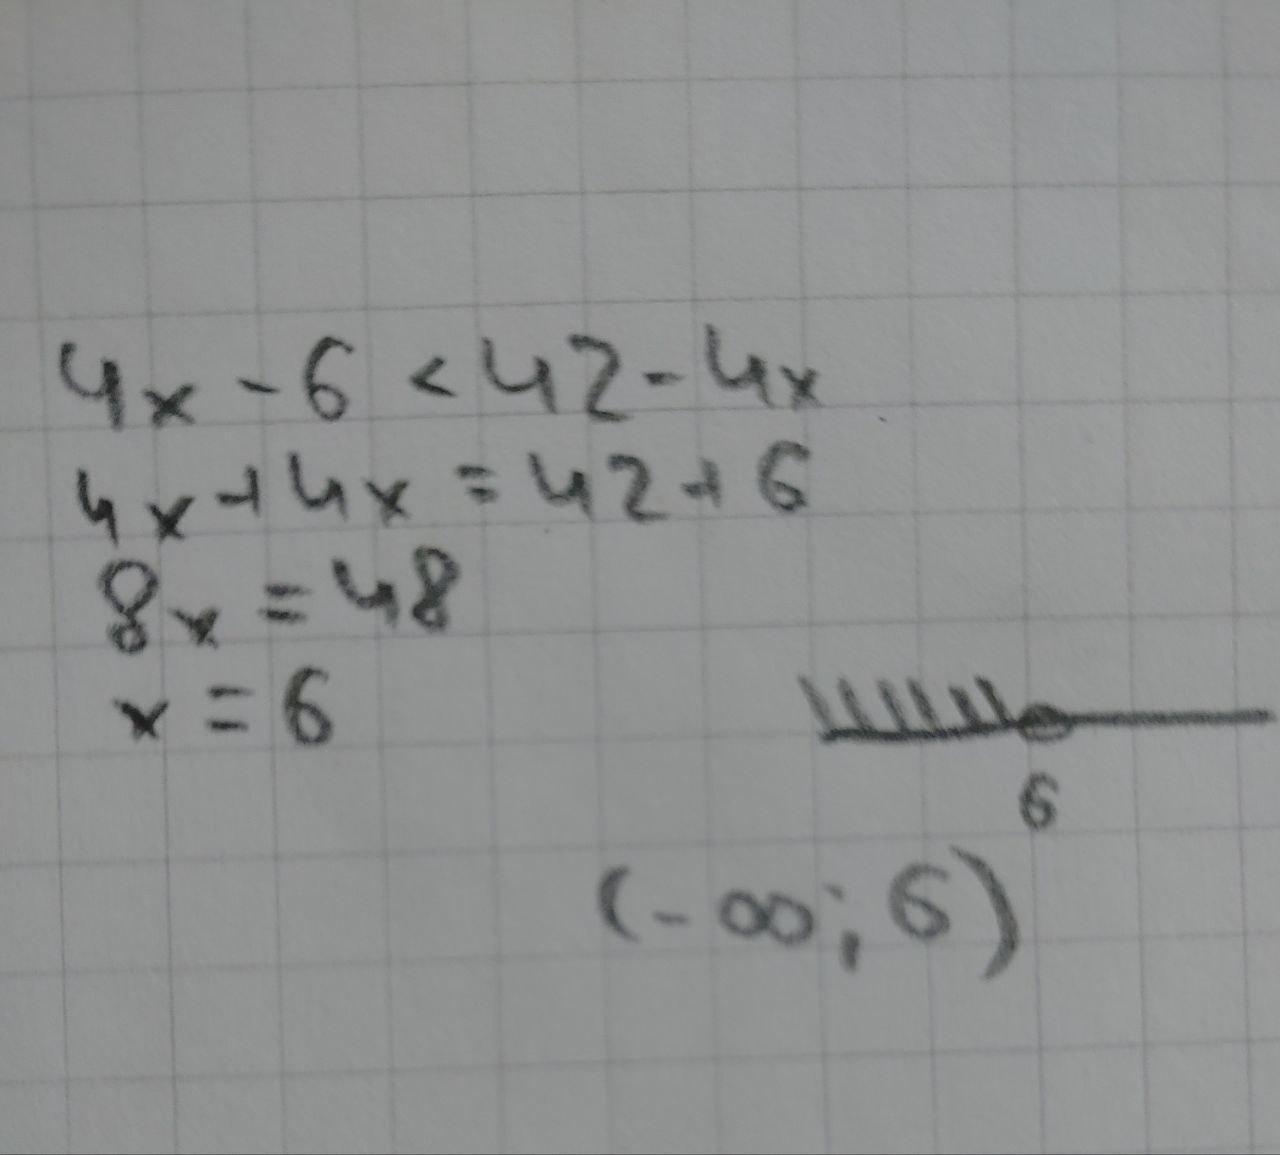 4x - 6 < 42 - 4x
4x + 4x = 42 + 6
8x = 48
x = 6
6
(-∞; 6)